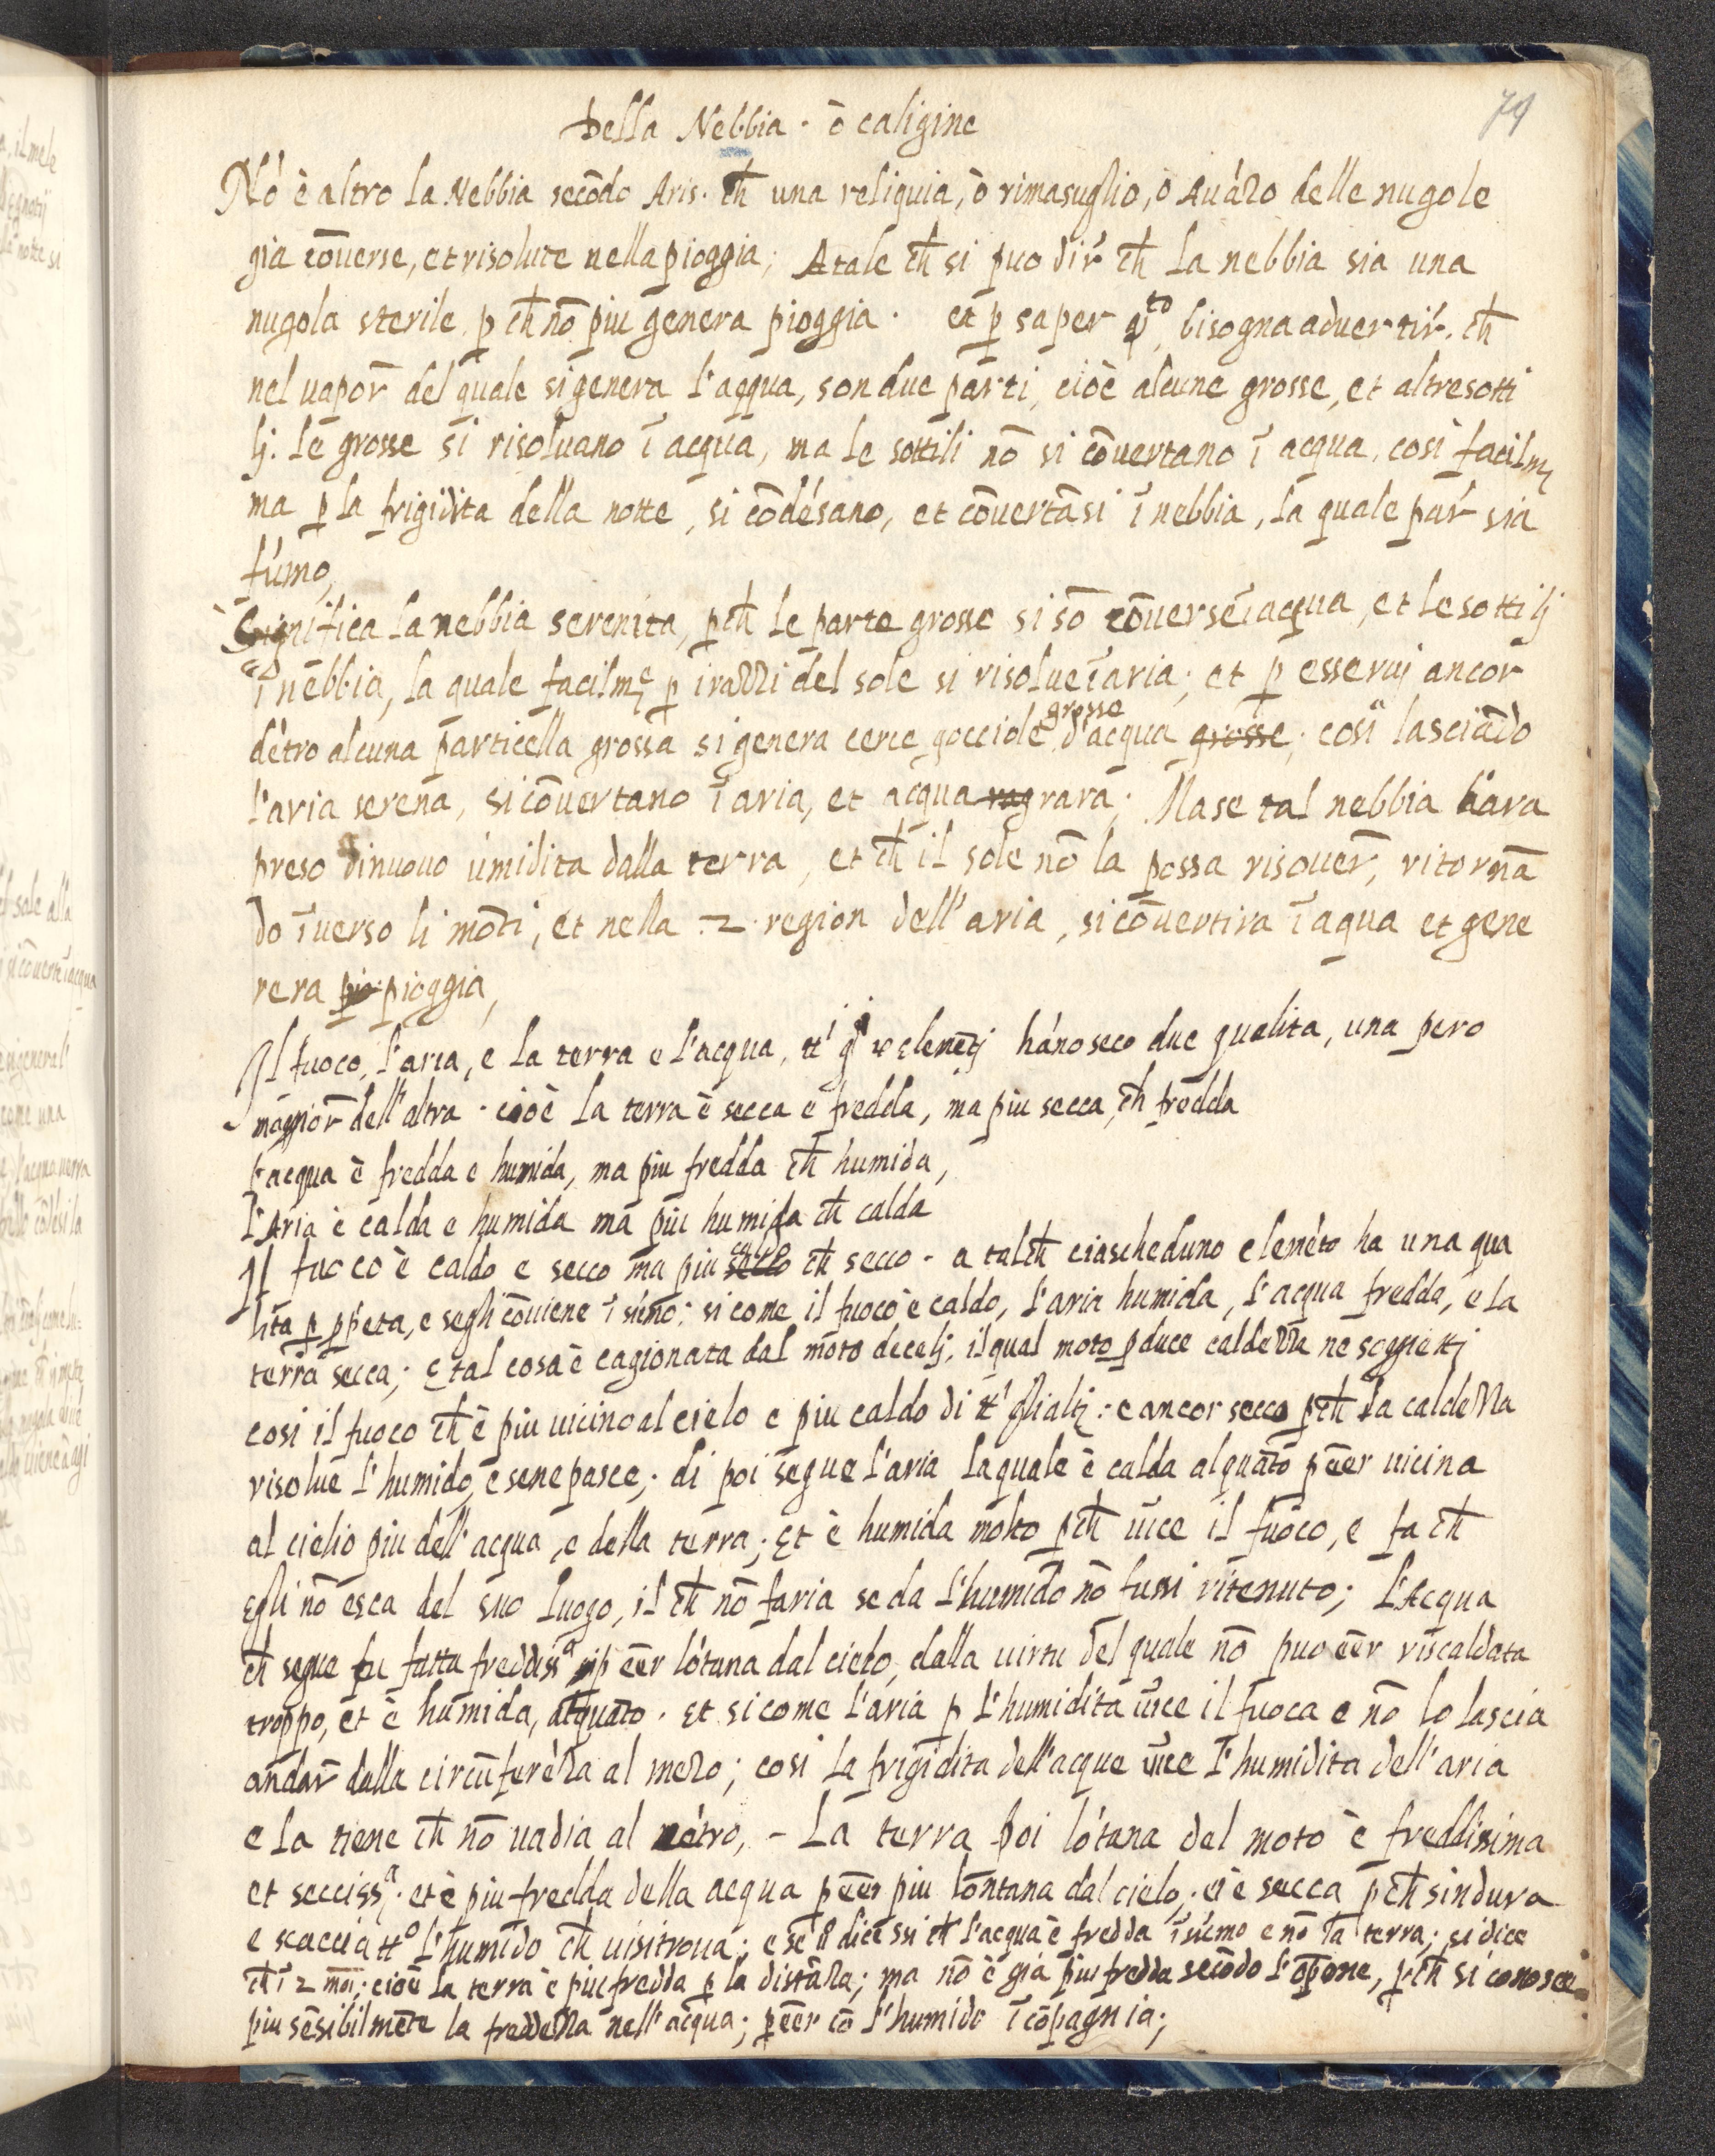 79
Della Nebbia · ò caligine
Nó è altro la Nebbia secōdo Aris. ch̄ una reliquia, ò rimasuglio, ò Auázo delle nugole
gia cōuerse, et risolute nella pioggia; Atale ch̄ si puo dir̄ ch̄ la nebbia sia una
nugola sterile, p̱ ch̄ nō piu genera pioggia. et p̱ saper q̄to, bisogna aduertir̄. ch̄
nel uapor̄ del quale si genera l'acqua, son due parti, cioè alcune grosse, et altre sotti
lj. le grosse si risoluano ī acqua, ma le sottili nō si cōuertano ī acqua, cosi facilm̄
ma p̱ la frigidita della notte, si cōdésano, et cōuertāsi ī nebbia, la quale par̄ sia
fúmo,
Significa la nebbia serenita, p̱ch̄ le parte grosse si sō cōuerse ī acqua, et le sottilj
ī nebbia, la quale facilm̄e p̱ i razzi del sole si risolue ī aria; et p̱ esseruj ancor
détro alcuna particella grossa si genera certe gocciole grosse d'acqua grosse; cosi lasciādo
l'aria serena, si cōuertano ī aria, et acqua rag rara; Ma se tal nebbia hara
preso dinuouo úmidita dalla terra, et ch̄ il sole nō la possa risouer̄, ritornā
do īuerso li mōti, et nella 2 region dell'aria, si cōuertira ī aqua et gene
rera pio pioggia,
Il fuoco, l'aria, e la terra e l'acqua, tt' elemētj háno seco due qualita, una pero
maggior̄ dell'altra · cioè la terra è secca e fredda, ma piu secca, ch̄ fredda
l'acqua è fredda e humida, ma piu fredda ch̄ humida,
l'Aria è calda e humida ma piu humida ch̄ calda
Il fuoco è caldo e secco ma piu secco caldo ch̄ secco · a tal ch̄ ciascheduno eleméto ha una qua
lita p̱ e segli cōuiene ī súmo: si come il fuoco è caldo, l'aria humida, l'acqua fredda, e la
terra secca; Et tal cosa è cagionata dal moto de celj, il qual moto p̱duce caldezza ne soggiettj
cosi il fuoco ch̄ è piu uicino al cielo e piu caldo di tt' gli altj: e ancor secco p̱ch̄ la caldezza
risolue l'humido, e sene pasce; di poi segue l'aria laquale è calda alquāto p̱ ēēr uicina
al cielio piu dell'acqua, e della terra; Et è humida molto p̱ch̄ uīce il fuoco, e fa ch̄
Egli nō esca del suo luogo, il ch̄ nō faria se da l'humido nō fussi ritenuto; L'Acqua
ch̄ segue fu fatta freddissa p̱ ēēr lótana dal cielo, dalla uirtu del quale nō puo ēēr riscaldata
troppo, et è humida, alquāto. Et si come l'aria p̱ l'humidita uīce il fuoca e nō lo lascia
andar̄ dalla circūferéza al mezo; cosi la frigidita dell'acque uīce l'humidita dell'aria
e la tiene ch̄ nō uadia al cétro, - La terra poi lótana del moto è freddissima
et secciss.a et è piu fredda della acqua p̱ ēēr piu lontana dal cielo; et è secca p̱ch̄ sindura
e scaccia tto l'humido ch̄ uisitroua; e se dicessi ch̄ l'acqua è fredda ī súmo e nō la terra; si dice
ch̄ ī 2 mōi; cioè la terra è piu fredda p̱ la distāza; ma nō è gia piu fredda secōdo l'opone, p̱ch̄ si conosce
piu sēsibilmēte la freddezza nell'acqua; p̱ ēēr cō l'humido ī cōpagnia;